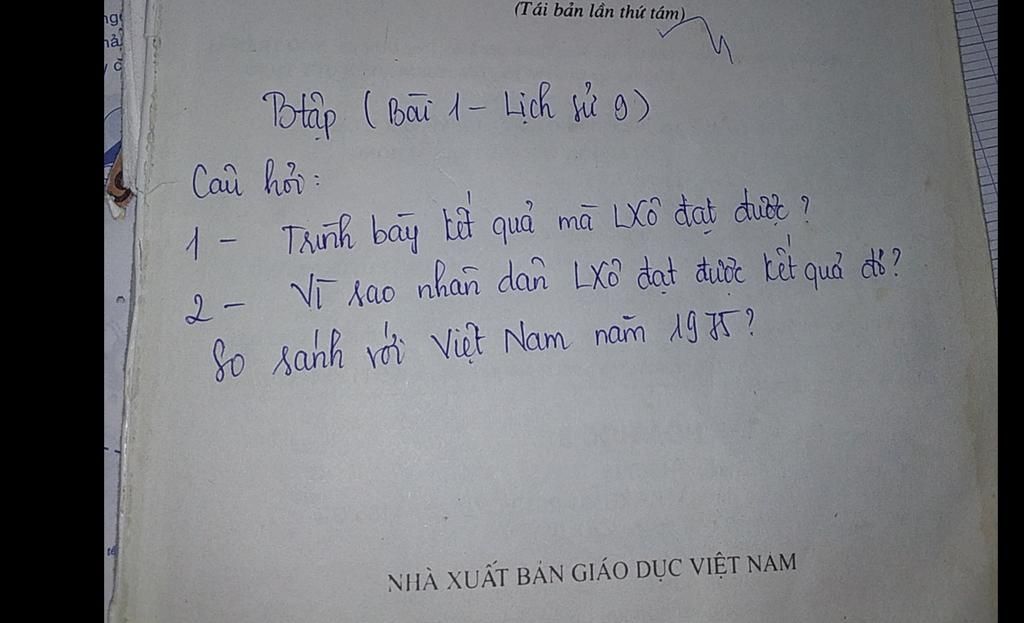 (Tái bản lần thứ tám)
Btập (Bài 1 - Lịch sử 9)
Câu hỏi:
1 - Trình bày kết quả mà LXô đạt được?
2 - Vì sao nhân dân LXô đạt được kết quả đó?
So sánh với Việt Nam năm 1975?
NHÀ XUẤT BẢN GIÁO DỤC VIỆT NAM